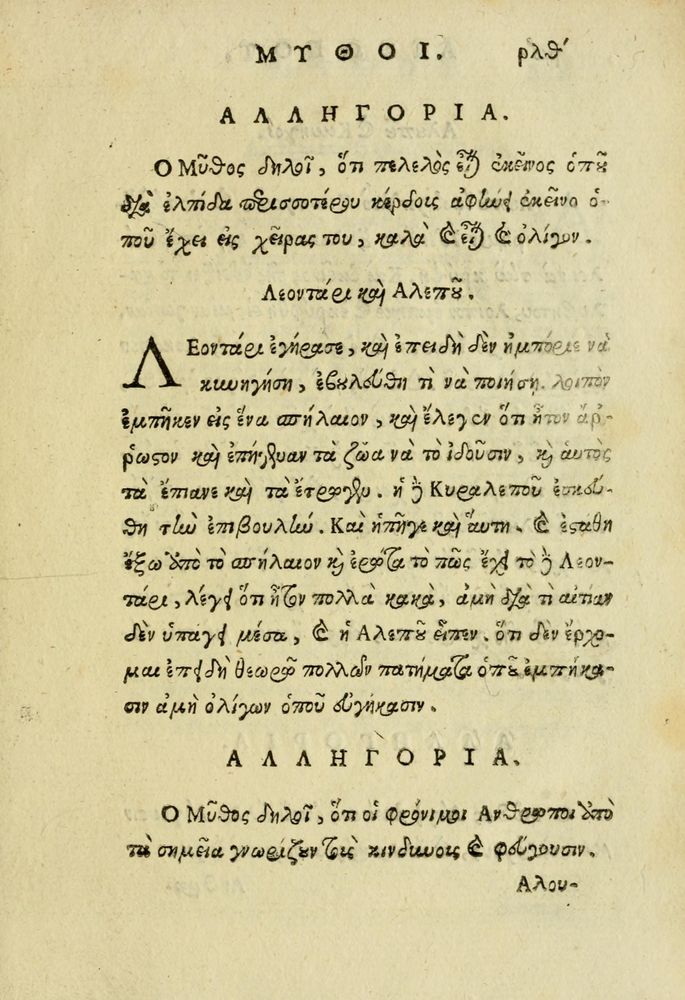 ΜΥΘΟΙ. ρλθʹ
ΑΛΛΗΓΟΡΙΑ.
Ο Μῦθος δηλοῖ, ὅτι πελελὸς εἶναι ἐκεῖνος ὁποῦ
διὰ ἐλπίδα περισσοτέρου κέρδοις ἀφίνει ἐκεῖνο ὁ-
ποῦ ἔχει εἰς χεῖρας του, καλὰ καὶ εἶναι καὶ ὀλίγον.
Λεοντάρι καὶ Αλεποῦ.
ΛΕοντάρι ἐγήρασε, καὶ ἐπειδὴ δὲν ἠμπόριε νὰ
κυνηγήση, ἐβουλεύθη τὶ νὰ ποιήση. λοιπὸν
ἐμπῆκεν εἰς ἕνα σπήλαιον, καὶ ἔλεγεν ὅτι ἦτον ἄρ-
ρωστον καὶ ἐπήγαιναν τὰ ζῶα νὰ τὸ ἰδοῦσιν, καὶ ἀυτὸς
τὰ ἔπιανε καὶ τὰ ἔτρωγεν. ἡ δὲ Κυραλεποῦ ἐσκεύ-
θη τὴν ἐπιβουλήν. Καὶ ἠπῆγε καὶ ἄυτη. καὶ ἐστάθη
ἔξω ἀπὸ τὸ σπήλαιον καὶ ἐρώτα τὸ πῶς ἔχει τὸ δὲ Λεον-
τάρι, λέγει ὅτι ἦτον πολλὰ κακὰ, ἀμὴ διὰ τὶ αἰτίαν
δὲν ὑπαγει μέσα, καὶ ἡ Αλεποῦ εἶπεν. ὅτι δὲν ἔρχο-
μαι ἐπειδὴ θεωρῶ πολλῶν πατήματα ὁποῦ ἐμπήκα-
σιν ἀμὴ ὀλίγων ὁποῦ ἐυγήκασιν.
ΑΛΛΗΓΟΡΙΑ.
Ο Μῦθος δηλοῖ, ὅτι οἱ φρόνιμοι Ανθρωποι ἀπὸ
τὰ σημεῖα γνωρίζουν τοὺς κινδύνοις καὶ φεύγουσιν.
Αλου-